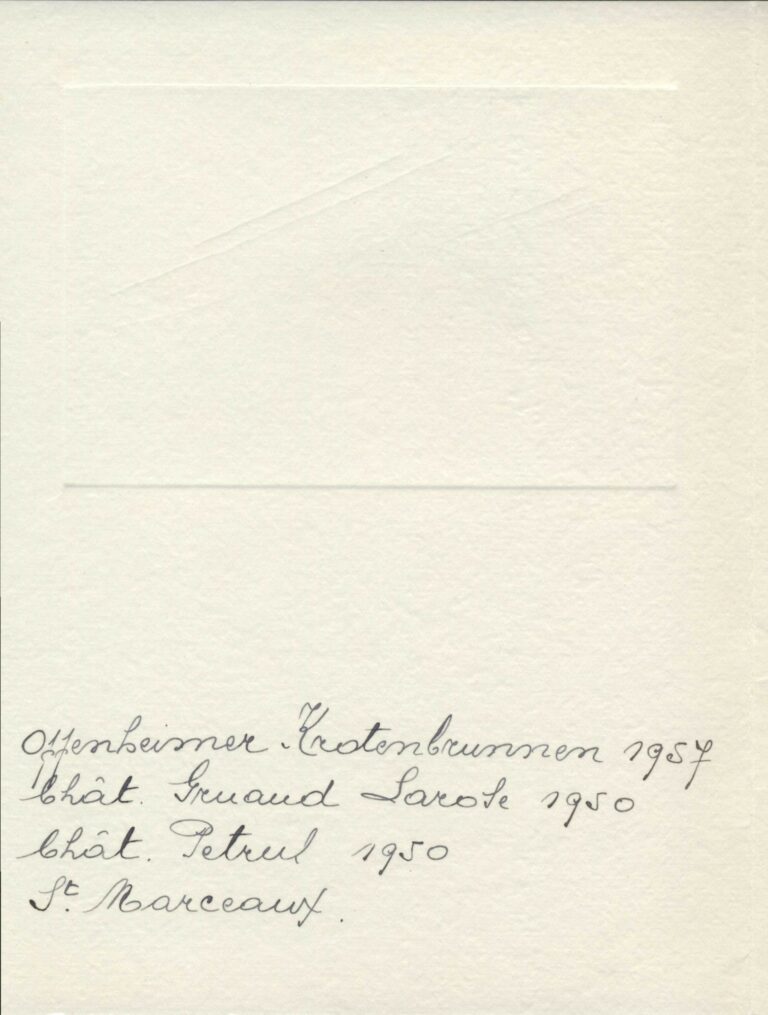 Offenheimer Krotenbrunnen 1957
Chât. Gruaud Larose 1950
Chât. Petrus 1950
St. Marceaux.